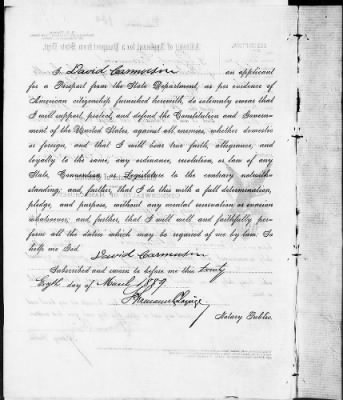 I, David Carmusin an applicant
for a Passport from the State Department, as per evidence of
American citizenship furnished herewith, do solemnly swear that
I will support, protect, and defend the Constitution and Govern-
ment of the United States, against all enemies, whether domestic
or foreign, and that I will bear true faith, allegiance, and
loyalty to the same, any ordinance, resolution, or law of any
State, Convention, or Legislature to the contrary notwith-
standing; and further, that I do this with a full determination,
pledge, and purpose, without any mental reservation or evasion
whatsoever; and, further, that I will well and faithfully per-
form all the duties which may be required of me by law. So
help me God.
David Carmusin
Subscribed and sworn to before me this Twenty
Eighth day of March 1889
Notary Public.